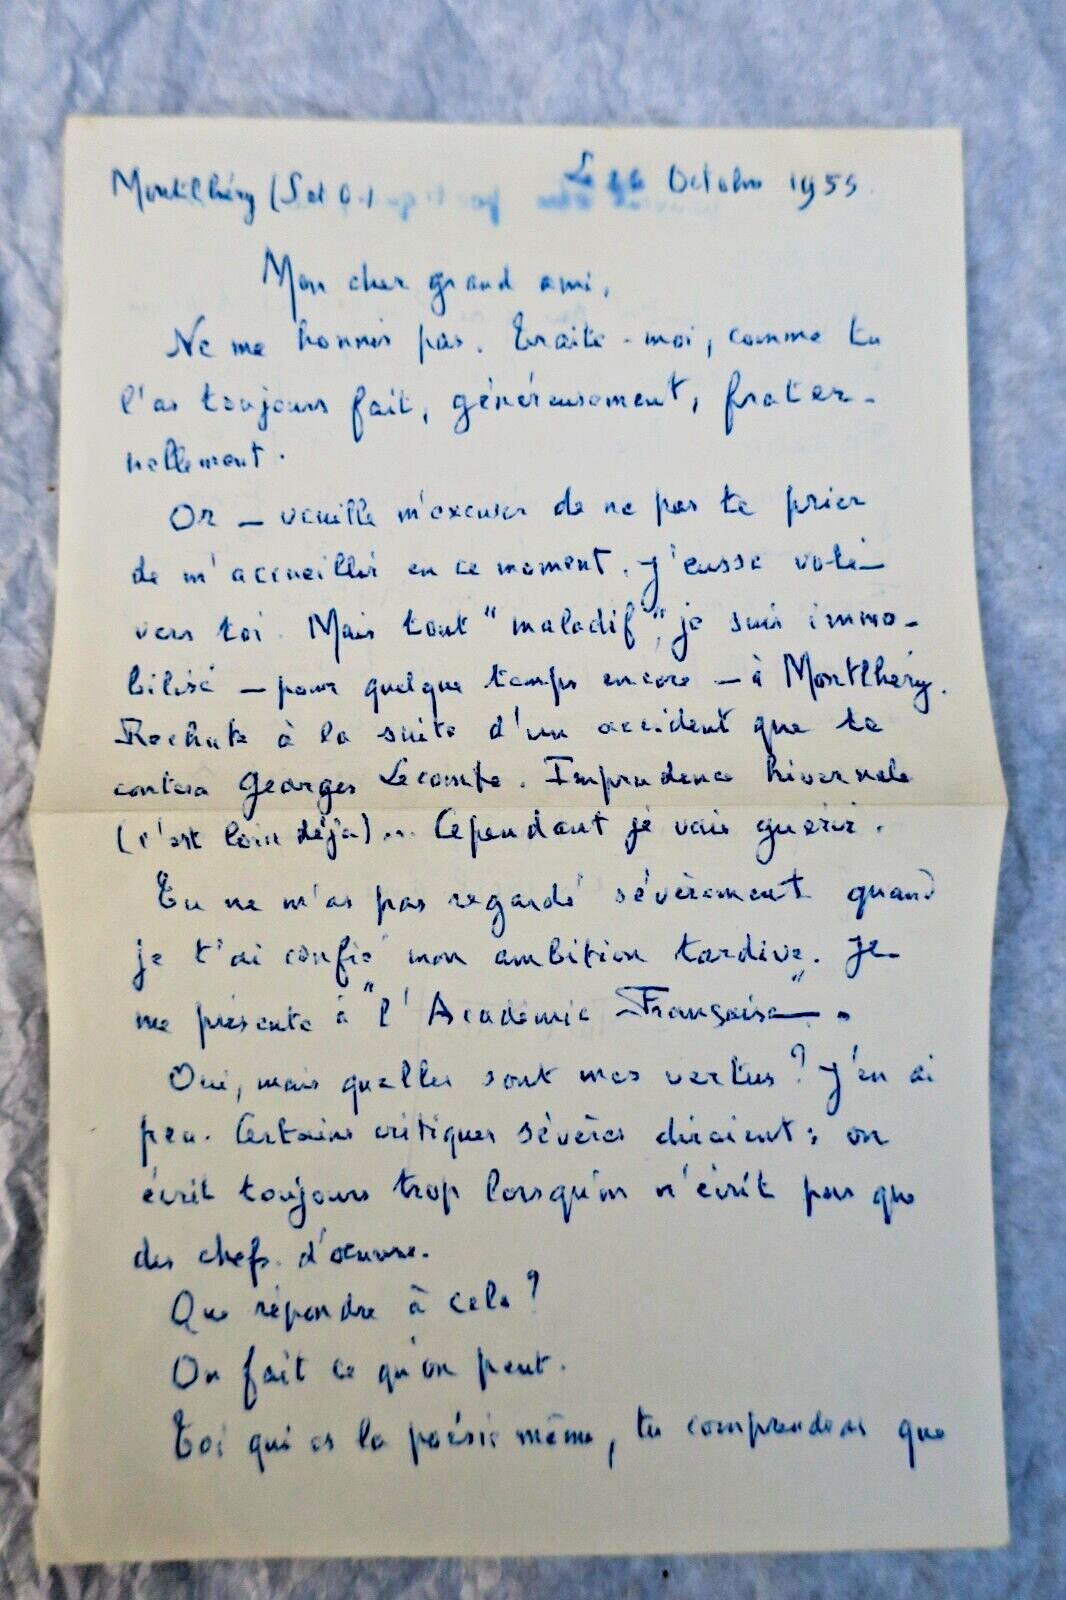 Montlhéry (S et O.) Le Octobre 1955.
Mon cher grand ami,
Ne me honnis pas. Traite-moi, comme tu
l'as toujours fait, généreusement, frater-
nellement.
Or — veuille m'excuser de ne pas te prier
de m'accueillir en ce moment. J'eusse volé
vers toi. Mais tout "maladif", je suis immo-
bilisé — pour quelque temps encore — à Montlhéry.
Rechute à la suite d'un accident que te
contera Georges Lecomte. Imprudence hivernale
(c'est loin déjà)... Cependant je vais guérir.
Tu ne m'as pas regardé sévèrement quand
je t'ai confié mon ambition tardive. Je
me présente à "l'Académie Française".
Oui, mais quelles sont mes vertus? J'en ai
peu. Certains critiques sévères diraient: on
écrit toujours trop lorsqu'on n'écrit pas que
des chefs-d'œuvre.
Que répondre à cela?
On fait ce qu'on peut.
Toi qui es la poésie même, tu comprendras que